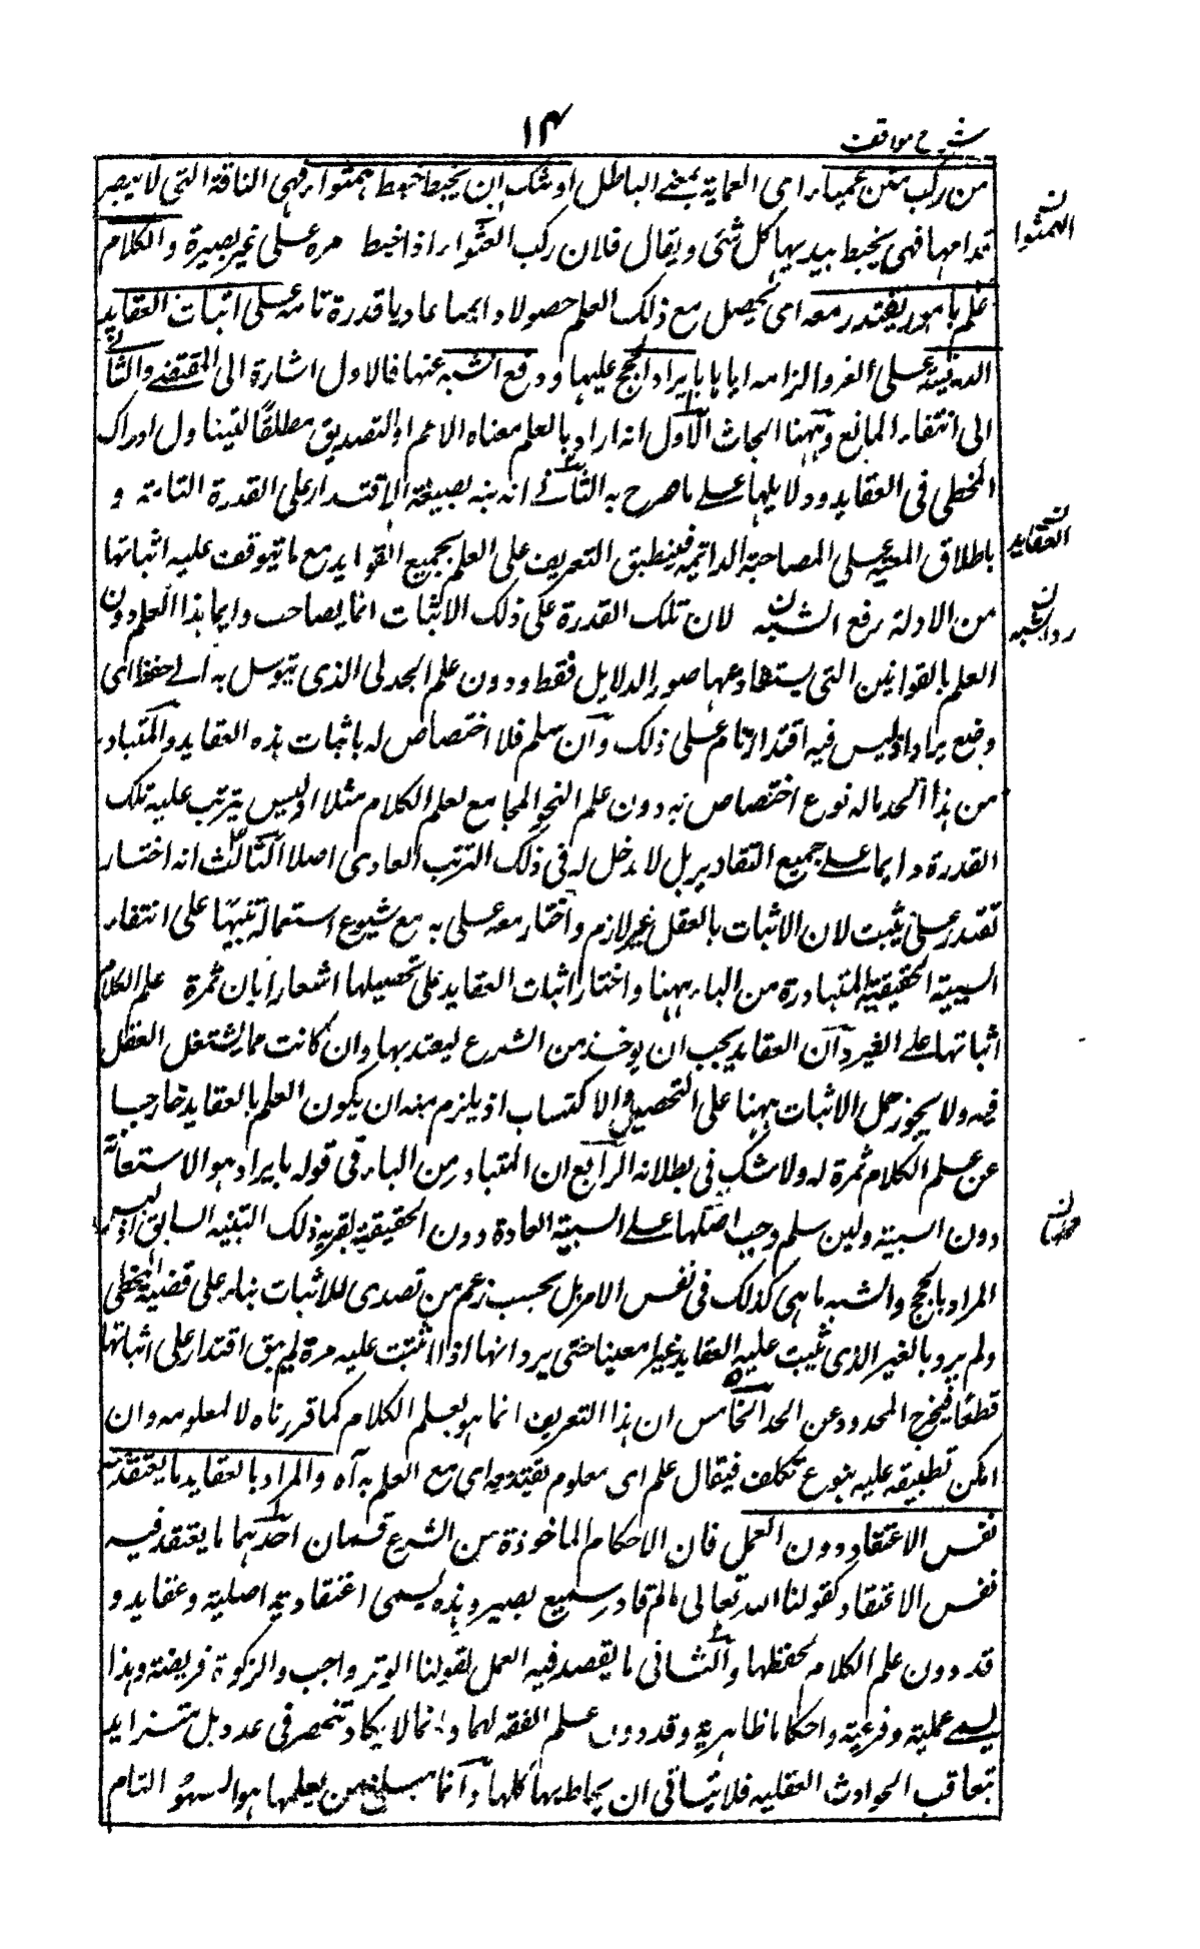 شرح مواقف
۱۴
من ركب متن عمياء اى العماية بمعنے الباطل اوشك ان يخبط خبط عشواء فهى الناقة التى لا تبصر
قدامها فهى يخبط بيديها كل شئ ويقال فلان ركب العشواء اذا خبط امره على غير بصيرة والكلام
علم بامور يقتدر معه اى يحصل مع ذلك العلم حصولا دائما عاديا قدرة تامة على اثبات العقايد
الدينية على الغير والزامه اياها بايراد الحجج عليها ودفع الشبه عنها فالاول اشارة الى المقتضے والثانے
الى انتفاء المانع وههنا ابحاث الاول انه اراد بالعلم معناه الاعم او التصديق مطلقًا ليتناول ادراك
المخطى فى العقايد ودلايلها علے ما صرح به الثانے انه نبه بصيغة الاقتدار على القدرة التامة و
باطلاق المعية على المصاحبة الدائمة فينطبق التعريف على العلم بجميع القوايد مع ما يتوقف عليه اثباتها
من الادلة ورفع الشبه لان تلك القدرة على ذلك الاثبات انما يصاحب دايما هذا العلم دون
العلم بالقوانين التى يستفاد عنها صور الدلايل فقط ودون علم الجدل الذى يتوسل به الے حفظ اى
وضع يراد اذ ليس فيه اقتدار تام على ذلك وان سلم فلا اختصاص له باثبات هذه العقايد والمتبادر
من هذا الحد ماله نوع اختصاص به دون علم النحو المجامع لعلم الكلام مثلا اذ ليس يترتب عليه تلك
القدرة دايما علے جميع التقادير بل لا دخل له فى ذلك الترتب العادى اصلا الثالث انه اختار
تقتدر على يثبت لان الاثبات بالعقل غير لازم واختار معه على به مع شيوع استعماله تنبيها على انتفاء
السببية الحقيقية المتبادرة من الباء ههنا واختار اثبات العقايد على تحصيلها اشعارا بان ثمرة علم الكلام
اثباتها علے الغير وان العقايد يجب ان يوخذ من الشرع ليعتد بها وان كانت مما يشتغل العقل
فيه ولا يجوز حمل الاثبات ههنا على التحصيل والاكتساب اذ يلزم منه ان يكون العلم بالعقايد خارجا
عن علم الكلام ثمرة له ولا شك فى بطلانه الرابع ان المتبادر من الباء فى قوله بايراد هو الاستعانة
دون السببية ولين سلم وجب حملها علے السببية العادة دون الحقيقية بقرينة ذلك التنبيه السابق اذ ليس
المراد بالحجج والشبه ما هى كذلك فى نفس الامر بل بحسب زعم من تصدى للاثبات بناء على قضية المخطى
ولم يرد بالغير الذى يثبت عليه العقايد غيرا معينا حتى يرد انها اذا اثبتت عليه مرة لم يبق اقتدار على اثباتها
قطعا فيخرج المحدود عن الحد الخامس ان هذا التعريف انما هو لعلم الكلام كما قررناه لا لمعلومه وان
امكن تطبيقه عليه بنوع تكلف فيقال علم اى معلوم يقتدر معه اى مع العلم به آه والمراد بالعقايد ما يعتقد فيه
نفس الاعتقاد دون العمل فان الاحكام الماخوذة من الشرع قسمان احدهما ما يعتقد فيه
نفس الاعتقاد كقولنا الله تعالى عالم قادر سميع بصير وهذه يسمى اعتقادية اصلية وعقايد و
قد دون علم الكلام لحفظها والثانى ما يقصد فيه العمل كقولنا الوتر واجب والزكوة فريضة وهذا
يسمے عملية وفرعية واحكاما ظاهرية وقد دون علم الفقه لها وانما لا يكاد تنحصر فى عدد بل متزايد
بتعاقب الحوادث العقليه فلا يتاتى ان يحاط بها كلها وانما مبلغ من يعلمها هو التهيؤ التام
العشوا
العقايد
رد الشبه
حملها